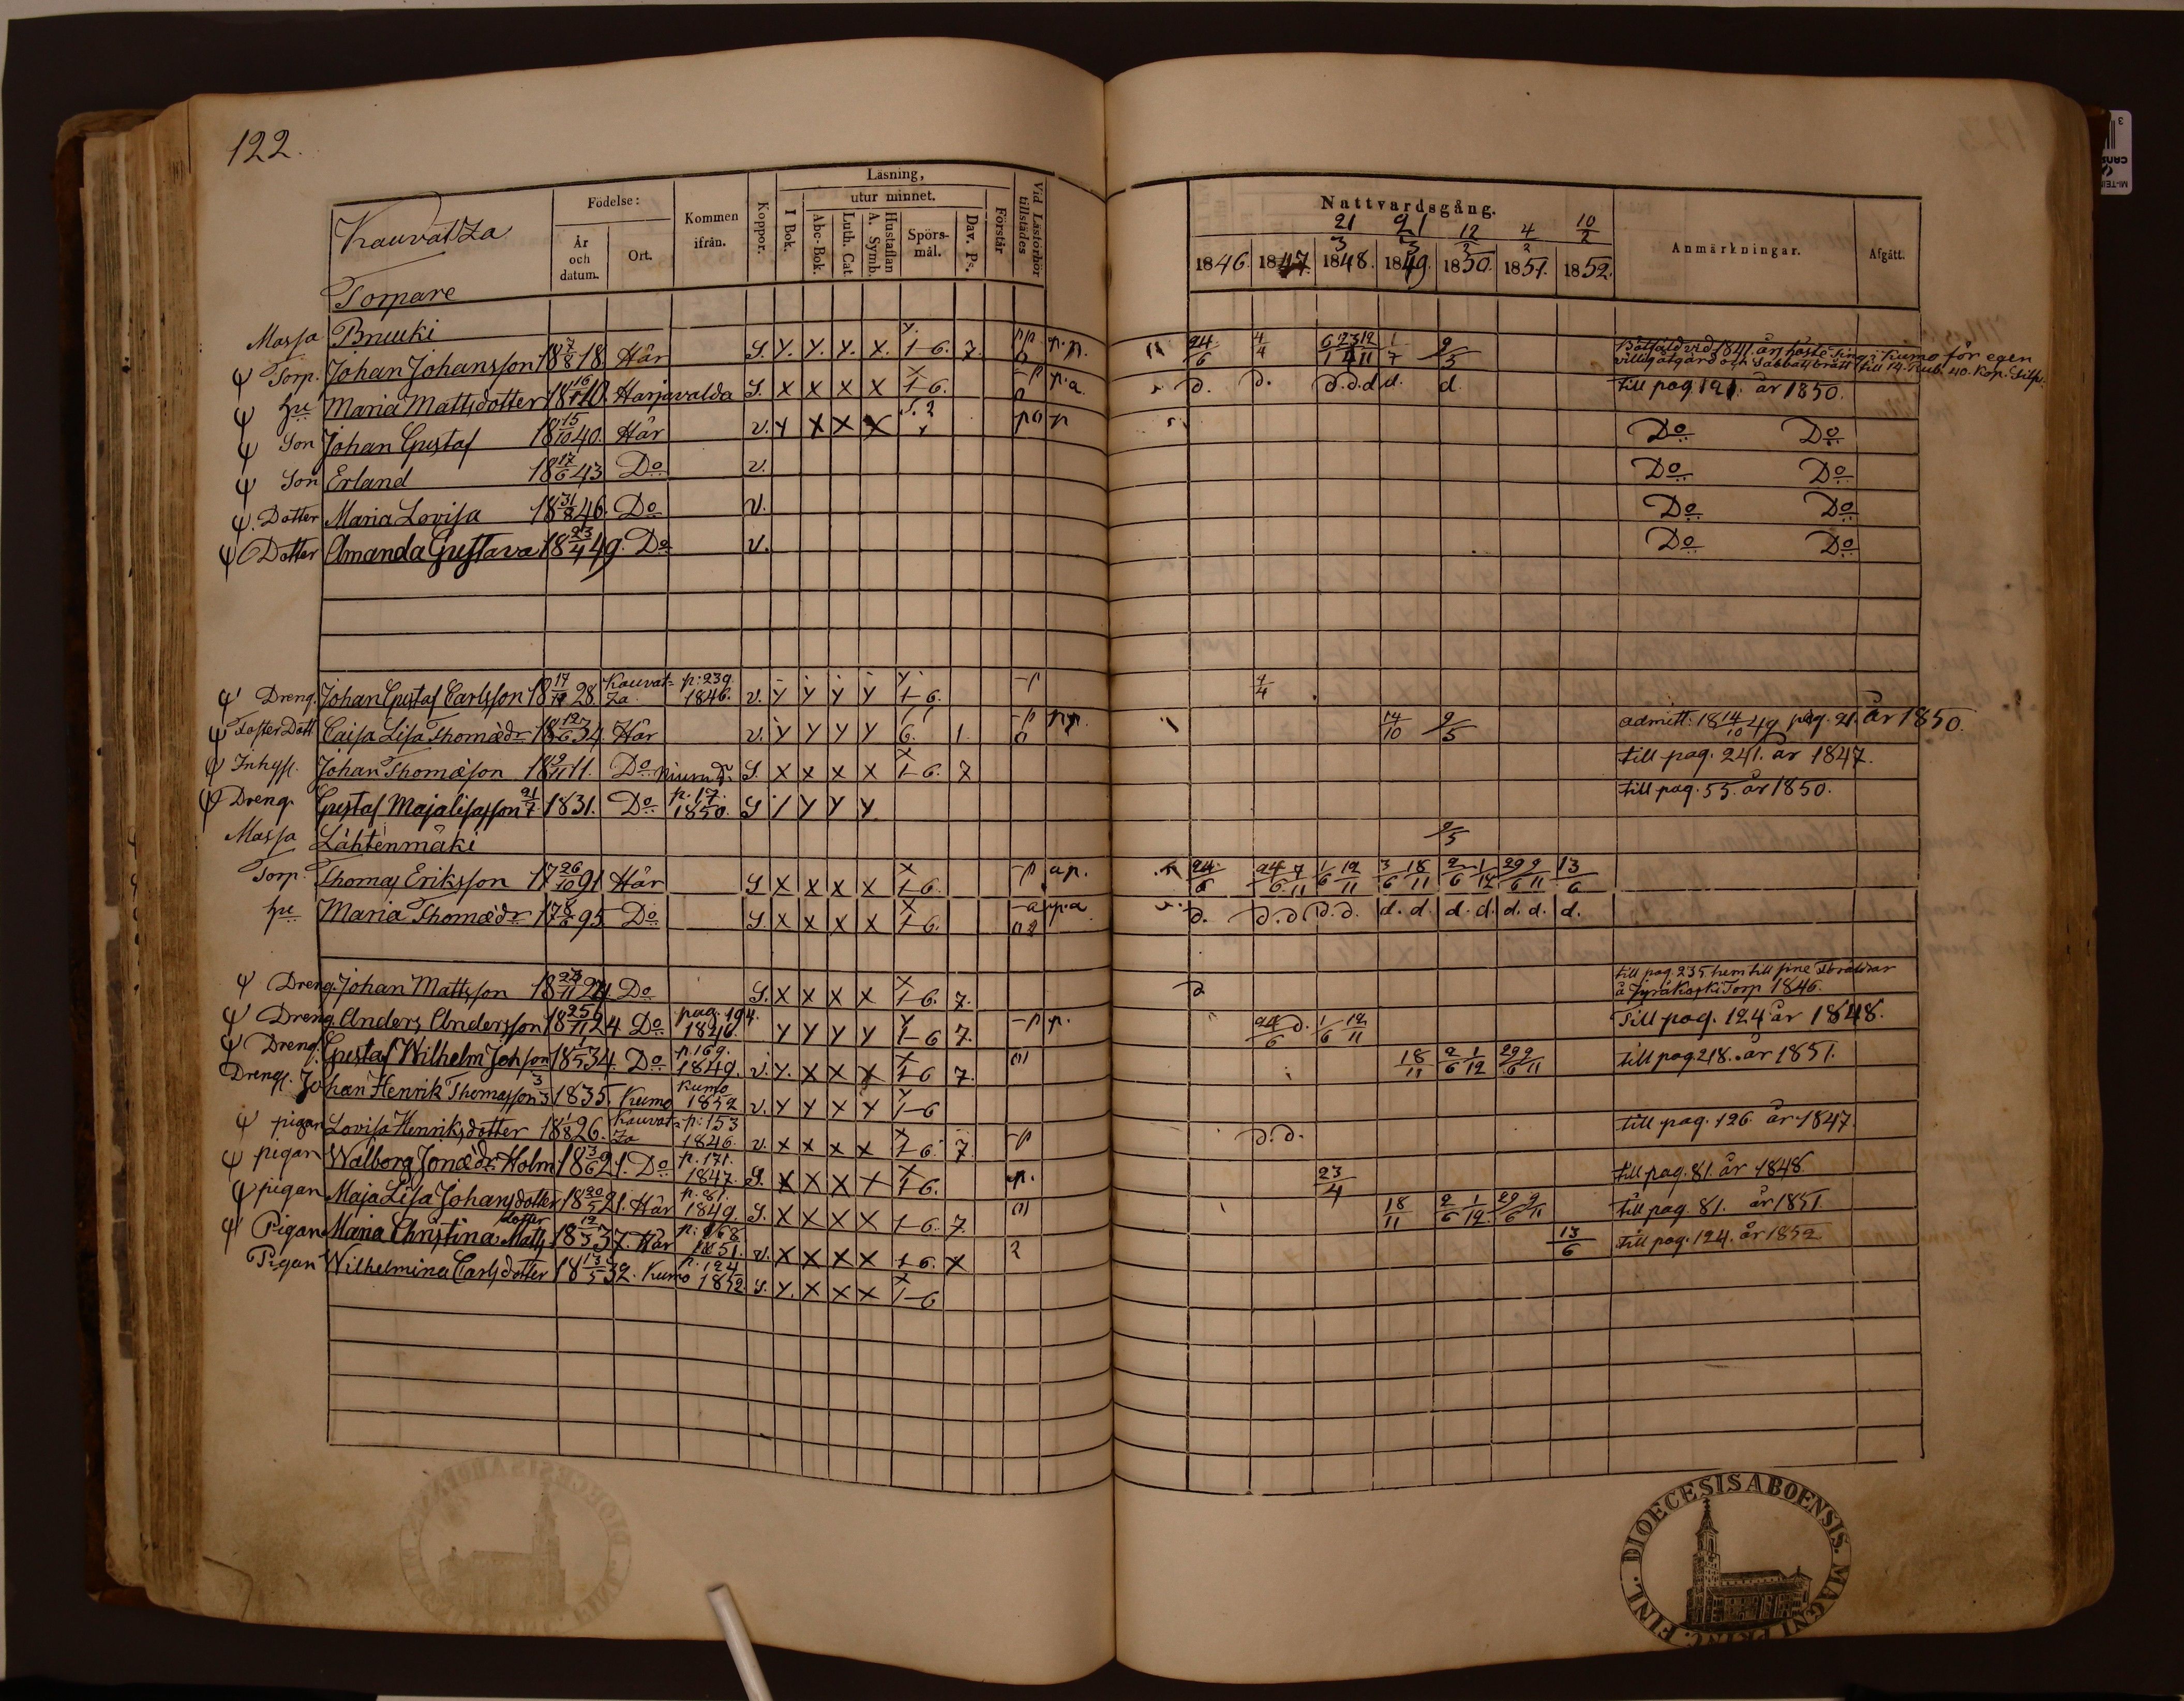 122.
Kauvatza
Torpare
Födelse:
År och datum.
Ort.
Kommen ifrån.
Koppor.
Läsning,
I Bok.
utur minnet.
Abc-Bok.
Luth. Cat.
A. Symb. Hustaflan
Spörsmål.
Dav. Ps.
Förstår
Vid Läsförhör tillstädes
Nattvardsgång.
21/3 21/3 12/2 4/2 10/2
1846. 1847. 1848. 1849. 1850. 1851. 1852.
Anmärkningar.
Afgått.
Massa Bruuki
ψ Torp. Johan Johansson 18 7/8 18. Här S. Y. Y. Y. X. 1-6. 7. 24/6 4/4 1/7 2/5 1847 års höste ting i Kumo för egen
ψ hu Maria Mattsdotter Harjavalda S. X X X X 1-6. d. d. d.d.d d. d. till pag. 121. år 1850.
ψ Son Johan Gustaf 18 15/10 40. Här v. Y X X X Do Do
ψ Son Erland 18 17/6 43 Do v. Do Do
ψ. Dotter Maria Lovisa 18 31/8 46. Do v. Do Do
ψ Dotter Amanda Gustava 18 23/4 49. Do v. Do Do
ψ Dreng. Johan Gustaf Carlsson 28. Kauvatza p: 239. 1846. v. Y Y Y Y 1-6.
ψ Foster Dott Caisa Lisa Thomædr 18 12/6 34. Här v. Y Y Y Y 6. 1. 14/10 2/5 admitt: 18 14/10 49 pag. 21. år 1850.
ψ Inhys. Johan Thomæson 11. Do S. X X X X 1-6. 7 till pag. 241. år 1847.
ψ Dreng. Gustaf Majalisasson 21/7 1831. Do p. 17. 1850. S Y Y Y till pag. 55. år 1850.
Massa Lähtenmäki 2/5
Torp. Thomas Eriksson 17 26/10 91 Här S X X X X 1-6. 24/6 1/6 12/11 3/6 18/11 2/6 1/12 29/6 2/11 13/6
hu Maria Thomædr 95 Do S. X X X X 1-6. d. d.d d.d. d.d. d.d. d.d. d.
ψ Dreng. Johan Mattsson Do S. X X X X 1-6. 7. d till pag. 235. hem till sine Föräldrar
å Jyräkoski Torp 1846.
ψ Dreng Anders Andersson 24 Do pag. 194. 1846. Y Y Y Y 1-6 7. 24/6 d. 1/6 12/11 Till pag. 124 år 1848.
ψ Dreng. Gustaf Wilhelm Johsson 34. Do p. 169. 1849. v. Y. X X X 1-6 7. 18/11 2/6 1/12 29/6 2/11 till pag 218. år 1851.
Drengs. Johan Henrik Thomasson 1835. Kumo Kumo 1852 v. Y Y X Y 1-6
ψ pigan Lovisa Henriksdotter 18 1/8 26. Kauvatza p: 153 1846. v. X X X X 1-6. 7. d.d. till pag. 126. år 1847.
ψ pigan Walborg Jonædr Holm 21. Do p. 171. 1847. S. X X X X 1-6. 23/4 till pag. 81. år 1848
ψ pigan Maja Lisa Johansdotter 18 20/5 21. Här p. 81. 1849. S. X X X X 1-6. 7. 18/11 2/6 1/12 29/6 2/11 till pag. 81. år 1851.
ψ Pigan Maria Christina Mattsdotter 37. Här 1851. v. X X X X 1-6. X 2 13/6 till pag. 124. år 1852.
Pigan Wilhelmina Carlsdotter 18 13/5 32. Kumo p. 124 1852. S. Y. X X X 1-6
DIOECESIS ABOENSIS. MAGNI PRINC. FINL.